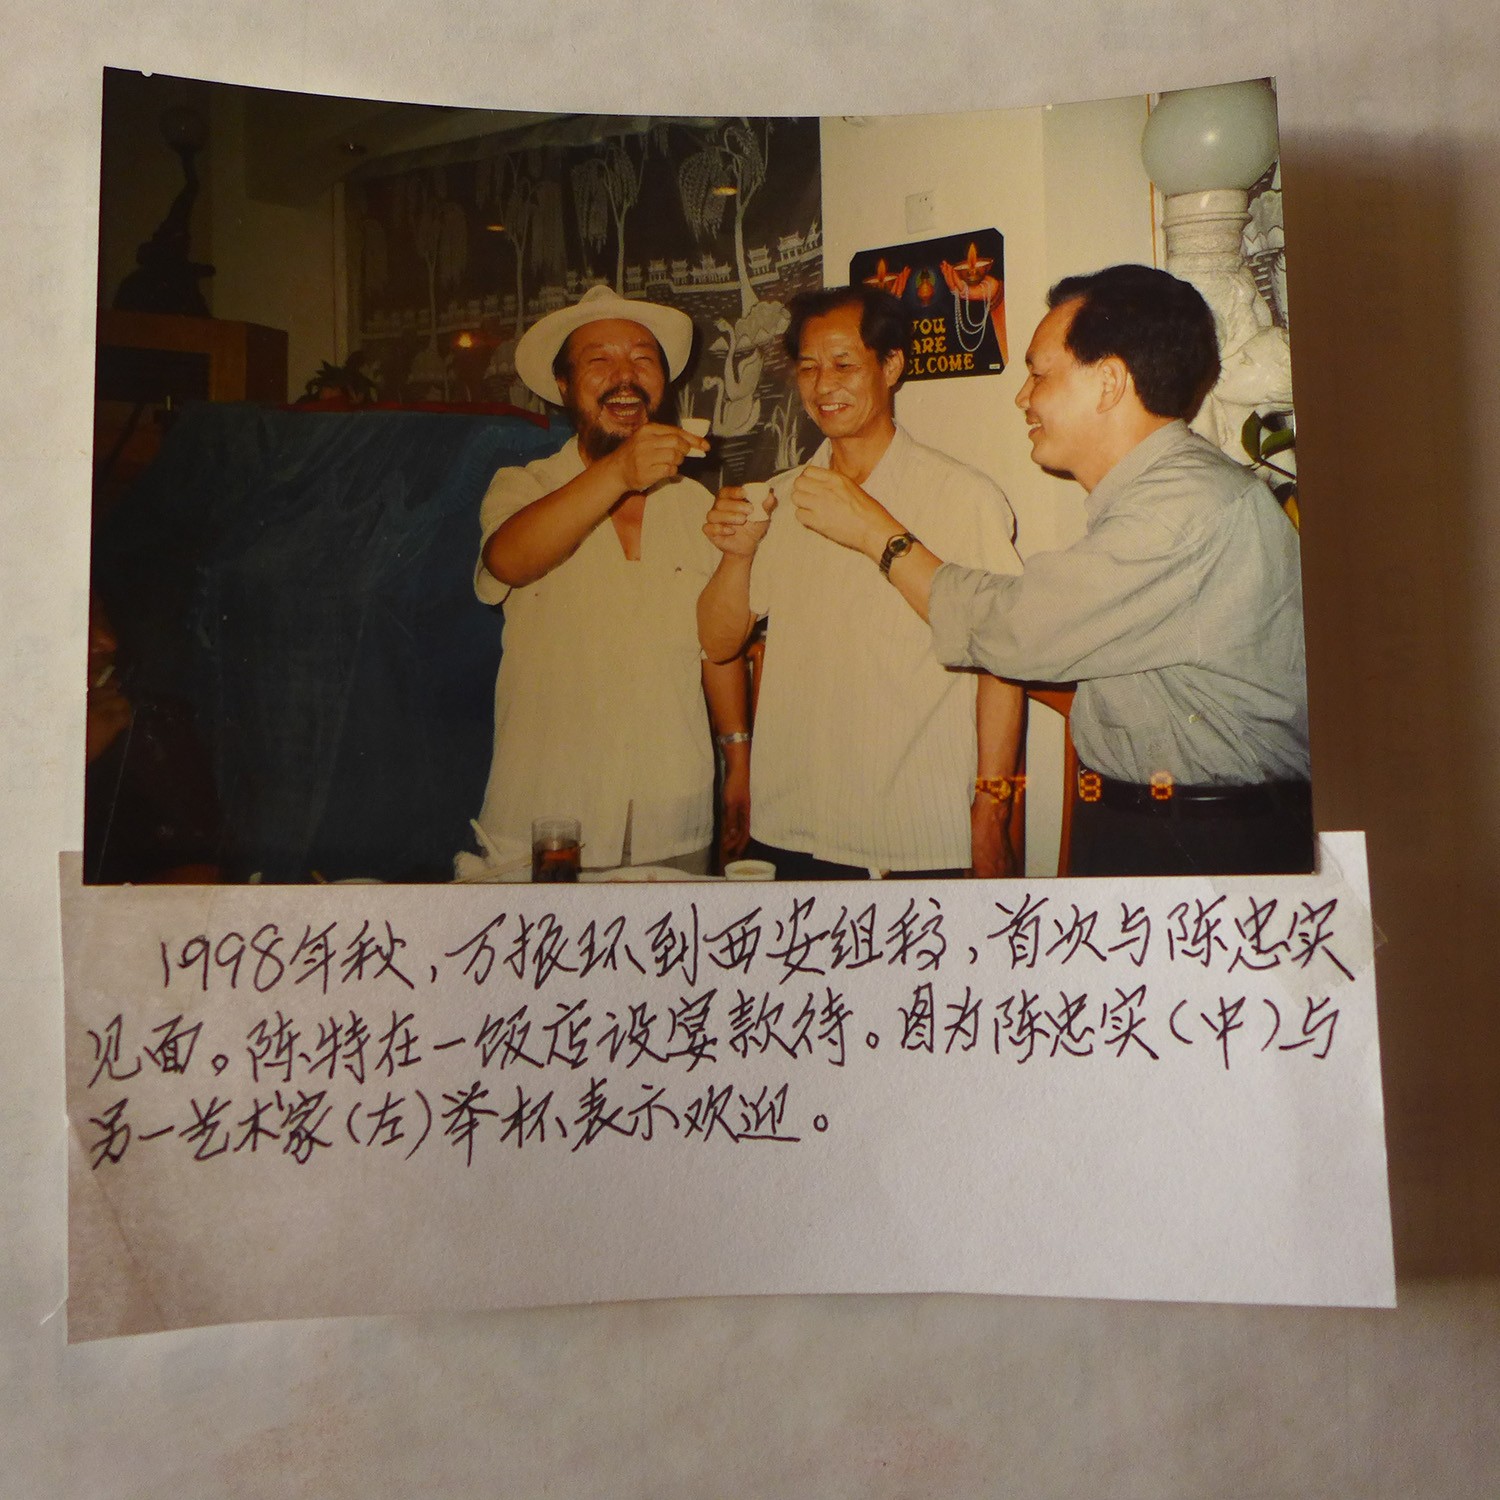 YOU
ARE
ELCOME
97 8 8
1998年秋,万振环到西安组稿,首次与陈忠实
见面。陈特在一饭店设宴款待。图为陈忠实(中)与
另一艺术家(左)举杯表示欢迎。